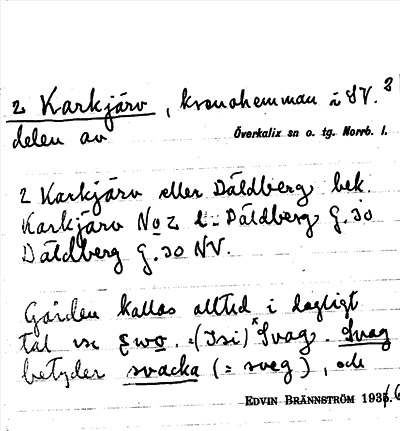 2 Karkjärv, kronohemman i SV. 2
delen av
Överkalix sn o. tg. Norrb. l.
2 Karkjärv eller Däldberg bek.
Karkjärv No 2 l. Däldberg G. 30
Däldberg G. 30 NV.
Gården kallas alltid i dagligt
tal . (Isi) Svag. Svag
betyder svacka (= sveg), och
EDVIN BRÄNNSTRÖM 193